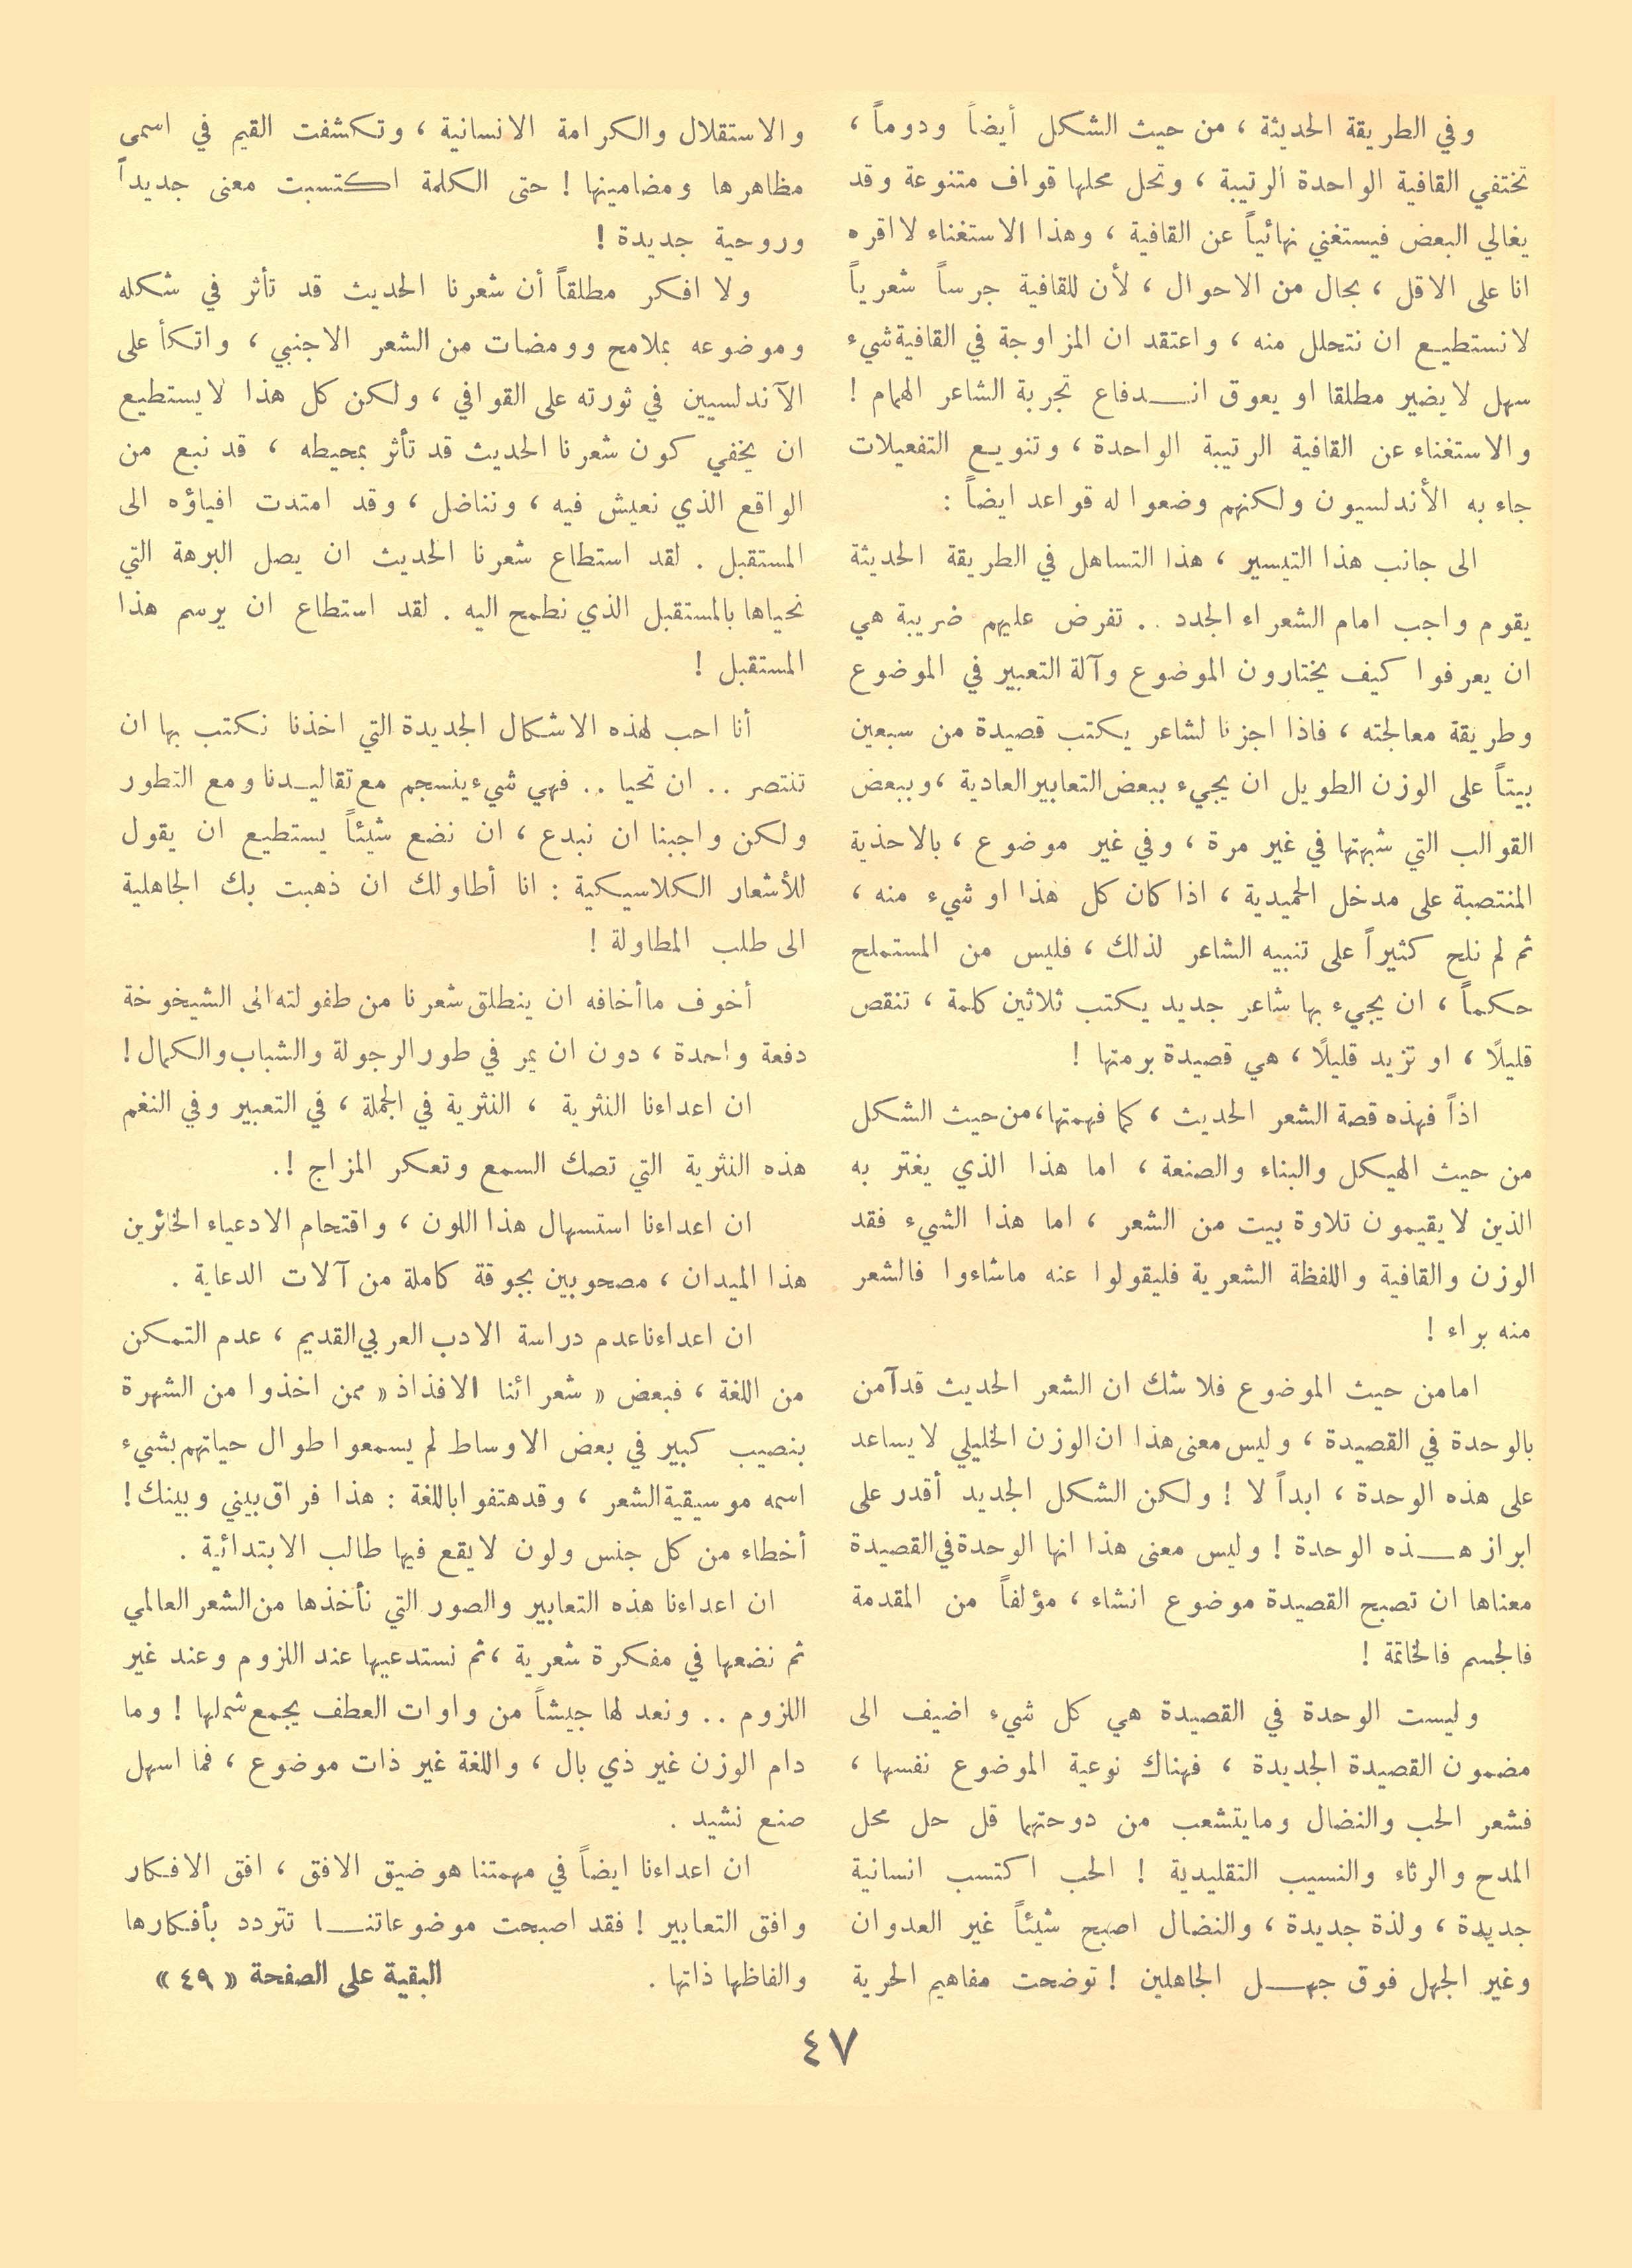 وفي الطريقة الحديثة ، من حيث الشكل أيضاً ودوماً ،
تختفي القافية الواحدة الرتيبة ، وتحل محلها قواف متنوعة وقد
يغالي البعض فيستغني نهائياً عن القافية ، وهذا الاستغناء لا اقره
انا على الاقل ، بحال من الاحوال ، لأن للقافية جرساً شعرياً
لا نستطيع ان نتحلل منه ، واعتقد ان المزاوجة في القافية شيء
سهل لا يضير مطلقا او يعوق انـدفاع تجربة الشاعر الهمام !
والاستغناء عن القافية الرتيبة الواحدة ، وتنويع التفعيلات
جاء به الأندلسيون ولكنهم وضعوا له قواعد ايضاً :
الى جانب هذا التيسير ، هذا التساهل في الطريقة الحديثة
يقوم واجب امام الشعراء الجدد .. تفرض عليهم ضريبة هي
ان يعرفوا كيف يختارون الموضوع وآلة التعبير في الموضوع
وطريقة معالجته ، فاذا اجزنا لشاعر يكتب قصيدة من سبعين
بيتاً على الوزن الطويل ان يجيء ببعض التعابير العادية ، وببعض
القوالب التي شبهتها في غير مرة ، وفي غير موضوع ، بالاحذية
المنتصبة على مدخل الحميدية ، اذا كان كل هذا او شيء منه ،
ثم لم نلح كثيراً على تنبيه الشاعر لذلك ، فليس من المستملح
حكماً ، ان يجيء بها شاعر جديد يكتب ثلاثين كلمة ، تنقص
قليلًا ، او تزيد قليلًا ، هي قصيدة برمتها !
اذاً فهذه قصة الشعر الحديث ، كما فهمتها ، من حيث الشكل
من حيث الهيكل والبناء والصنعة ، اما هذا الذي يغتر به
الذين لا يقيمون تلاوة بيت من الشعر ، اما هذا الشيء فقد
الوزن والقافية واللفظة الشعرية فليقولوا عنه ماشاءوا فالشعر
منه براء !
اما من حيث الموضوع فلا شك ان الشعر الحديث قد آمن
بالوحدة في القصيدة ، وليس معنى هذا ان الوزن الخليلي لا يساعد
على هذه الوحدة ، ابداً لا ! ولكن الشكل الجديد أقدر على
ابراز هـذه الوحدة ! وليس معنى هذا انها الوحدة في القصيدة
معناها ان تصبح القصيدة موضوع انشاء ، مؤلفاً من المقدمة
فالجسم فالخاتمة !
وليست الوحدة في القصيدة هي كل شيء اضيف الى
مضمون القصيدة الجديدة ، فهناك نوعية الموضوع نفسها ،
فشعر الحب والنضال ومايتشعب من دوحتهما قل حل محل
المدح والرثاء والنسيب التقليدية ! الحب اكتسب انسانية
جديدة ، ولذة جديدة ، والنضال اصبح شيئاً غير العدوان
وغير الجهل فوق جهـل الجاهلين ! توضحت مفاهيم الحرية
والاستقلال والكرامة الانسانية ، وتكشفت القيم في اسمى
مظاهرها ومضامينها ! حتى الكلمة اكتسبت معنى جديداً
وروحية جديدة !
ولا افكر مطلقاً أن شعرنا الحديث قد تأثر في شكله
وموضوعه بملامح وومضات من الشعر الاجنبي ، واتكأ على
الآندلسيين في ثورته على القوافي ، ولكن كل هذا لا يستطيع
ان يخفي كون شعرنا الحديث قد تأثر بمحيطه ، قد نبع من
الواقع الذي نعيش فيه ، ونناضل ، وقد امتدت افياؤه الى
المستقبل . لقد استطاع شعرنا الحديث ان يصل البرهة التي
نحياها بالمستقبل الذي نطمح اليه . لقد استطاع ان يرسم هذا
المستقبل !
أنا احب لهذه الاشكال الجديدة التي اخذنا نكتب بها ان
تنتصر .. ان تحيا .. فهي شيء ينسجم مع تقاليـدنا ومع التطور
ولكن واجبنا ان نبدع ، ان نضع شيئاً يستطيع ان يقول
للأشعار الكلاسيكية : انا أطاولك ان ذهبت بك الجاهلية
الى طلب المطاولة !
أخوف ماأخافه ان ينطلق شعرنا من طفولته الى الشيخوخة
دفعة واحدة ، دون ان يمر في طور الرجولة والشباب والكمال !
ان اعداءنا النثرية ، النثرية في الجملة ، في التعبير وفي النغم
هذه النثرية التي تصك السمع وتعكر المزاج ! .
ان اعداءنا استسهال هذا اللون ، واقتحام الادعياء الخائرين
هذا الميدان ، مصحوبين بجوقة كاملة من آلات الدعاية .
ان اعداءنا عدم دراسة الادب العربي القديم ، عدم التمكن
من اللغة ، فبعض « شعرائنا الافذاذ » ممن اخذوا من الشهرة
بنصيب كبير في بعض الاوساط لم يسمعوا طوال حياتهم بشيء
اسمه موسيقية الشعر ، وقد هتفوا باللغة : هذا فراق بيني وبينك !
أخطاء من كل جنس ولون لا يقع فيها طالب الابتدائية .
ان اعداءنا هذه التعابير والصور التي نأخذها من الشعر العالمي
ثم نضعها في مفكرة شعرية ، ثم نستدعيها عند اللزوم وعند غير
اللزوم .. ونعد لها جيشاً من واوات العطف يجمع شملها ! وما
دام الوزن غير ذي بال ، واللغة غير ذات موضوع ، فما اسهل
صنع نشيد .
ان اعداءنا ايضاً في مهمتنا هو ضيق الافق ، افق الافكار
وافق التعابير ! فقد اصبحت موضوعاتنـا تتردد بأفكارها
والفاظها ذاتها .
البقية على الصفحة « ٤٩ »
٤٧